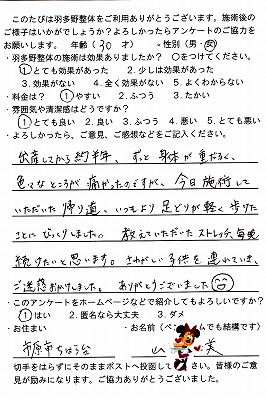 このたびは羽多野整体をご利用ありがとうございます。施術後の
ご様子はいかがでしょうか？よろしかったらアンケートのご協力を
お願いします。 年齢（30 才） ・性別（男・女）
・羽多野整体の施術は効果ありましたか？ ○をつけてください。
①とても効果があった 2. 少しは効果があった
3. 効果がない 4. 全く効果がない 5. よくわからない
・料金は？ ①やすい 2. ふつう 3. たかい
・雰囲気や清潔感はどうですか？
①とても良い 2. 良い 3. ふつう 4. 悪い 5. とても悪い
・よろしかったら、ご意見、ご感想などをご記入ください。
出産してから約半年、ずっと身体が重だるく、
色々なところが痛かったのですが、今日施術して
いただいた帰り道、いつもより足どりが軽く歩けた
ことにびっくりしました。 教えていただいたストレッチ、毎晩
続けたいと思います。さわがしい子供を連れていき、
ご迷惑おかけしました。ありがとうございました
・このアンケートをホームページなどで紹介してもよろしいですか？
①はい 2. 匿名なら大丈夫 3. ダメ
・お住まい ・お名前（ペ ムでも結構です）
市原市ちはら台 山 美
切手をはらずにそのままポストへ投函して さい。皆様のご意
見が励みになります。ご協力ありがとうございました。